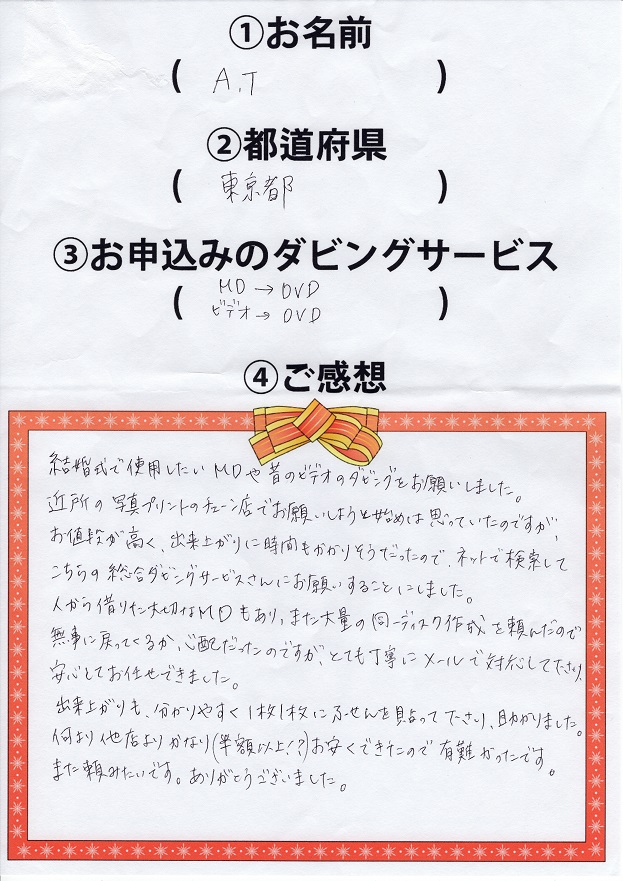 ①お名前
( A.T )
②都道府県
( 東京都 )
③お申込みのダビングサービス
( MD → DVD
ビデオ → DVD )
④ご感想
結婚式で使用したいMDや昔のビデオのダビングをお願いしました。
近所の写真プリントのチェーン店でお願いしようと始めは思っていたのですが、
お値段が高く、出来上がりに時間もかかりそうだったので、ネットで検索して
こちらの総合ダビングサービスさんにお願いすることにしました。
人から借りた大切なMDもあり、また大量の同一ディスク作成を頼んだので
無事に戻ってくるか、心配だったのですが、とても丁寧にメールで対応して下さり、
安心してお任せできました。
出来上がりも、分かりやすく1枚1枚にふせんを貼って下さり、助かりました。
何より他店よりかなり(半額以上!?)お安くできたので有難かったです。
また頼みたいです。ありがとうございました。